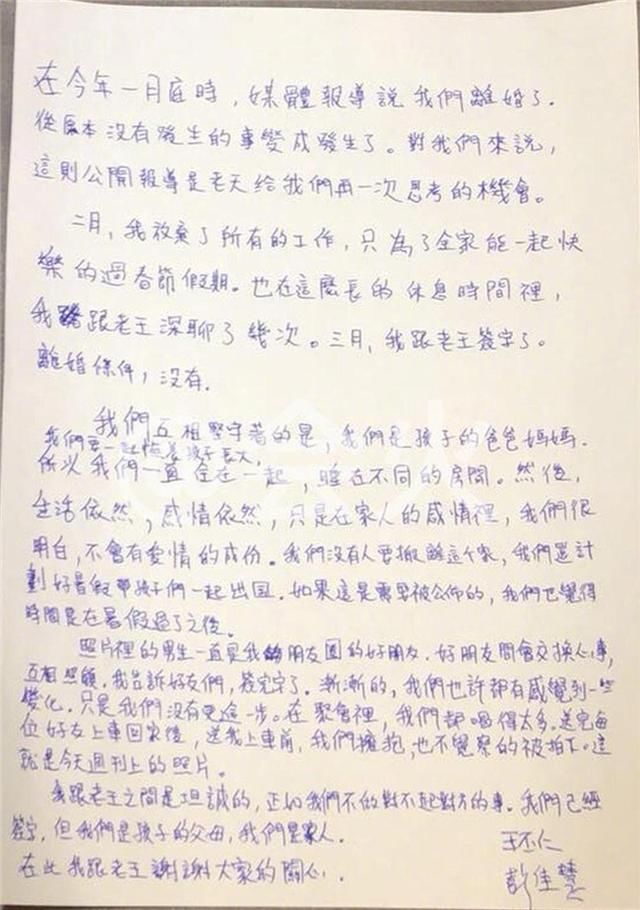 在今年一月底時，媒體報導說我們離婚了.
從原本沒有發生的事變成發生了。對我們來說，
這則公開報導是老天給我們再一次思考的機會。
二月，我放棄了所有的工作，只為了全家能一起快
樂的過春節假期。也在這麼長的休息時間裡，
我跟老王深聊了幾次。三月，我跟老王簽字了。
離婚條件，沒有.
我們互相堅守著的是，我們是孩子的爸爸媽媽.
我們要一起陪著孩子長大，
所以我們一直住在一起，睡在不同的房間。然後，
生活依然，感情依然，只是在家人的感情裡，我們很
明白，不會有愛情的成份。我們沒有人要搬離這个家，我們是計
劃好暑假帶孩子們一起出国. 如果這是需要被公佈的，我們也覺得
時間是在暑假過了之後。
照片裡的男生一直是我朋友圈的好朋友. 好朋友間會交換心事，
互相照顧. 我告訴好友們，簽完字了. 漸漸的，我們也許都有感覺到一些
變化. 只是我們沒有更進一步。在聚會裡，我們都喝得太多. 送完每
位好友上車回家後，送我上車前，我們擁抱，也不覺察的被拍下。這
就是今天週刊上的照片。
我跟老王之間是坦誠的，正如我們不做對不起對方的事. 我們已經
簽字，但我們是孩子的父母，我們是家人.
在此我跟老王謝謝大家的關心.
王丕仁
彭佳慧